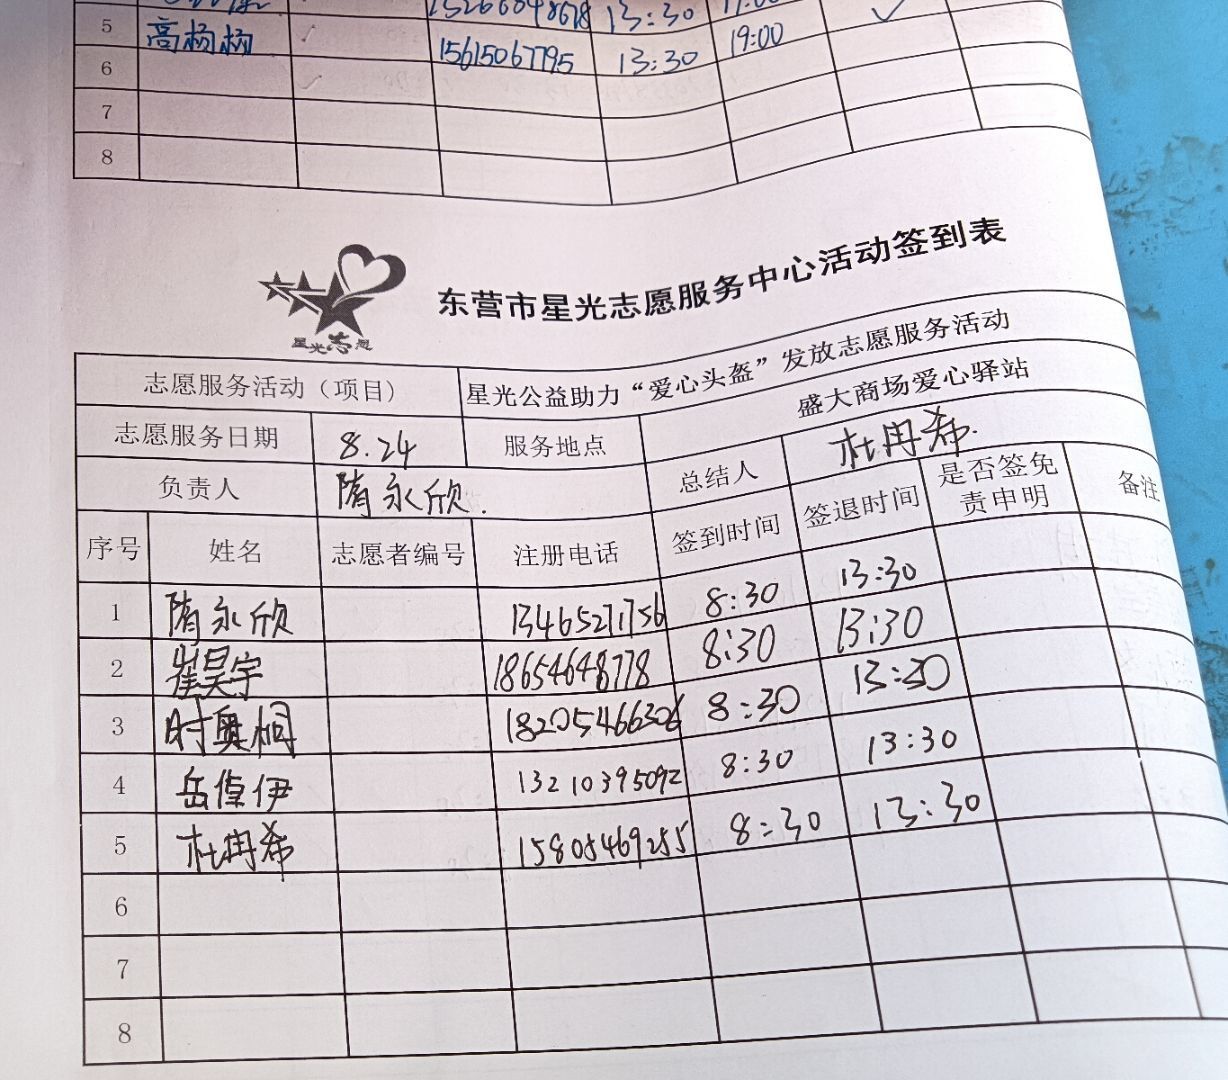 13:30
5 高杨杨 15615067795 13:30 19:00
6
7
8
星光志愿
东营市星光志愿服务中心活动签到表
志愿服务活动（项目） 星光公益助力“爱心头盔”发放志愿服务活动
志愿服务日期 8.24 服务地点 盛大商场爱心驿站
负责人 隋永欣. 总结人 杜冉希.
序号 姓名 志愿者编号 注册电话 签到时间 签退时间 是否签免责申明 备注
1 隋永欣 13465271756 8:30 13:30
2 崔昊宇 18654648778 8:30 13:30
3 时奥桐 18205466306 8:30 13:30
4 岳倬伊 13210395092 8:30 13:30
5 杜冉希 15805469255 8:30 13:30
6
7
8